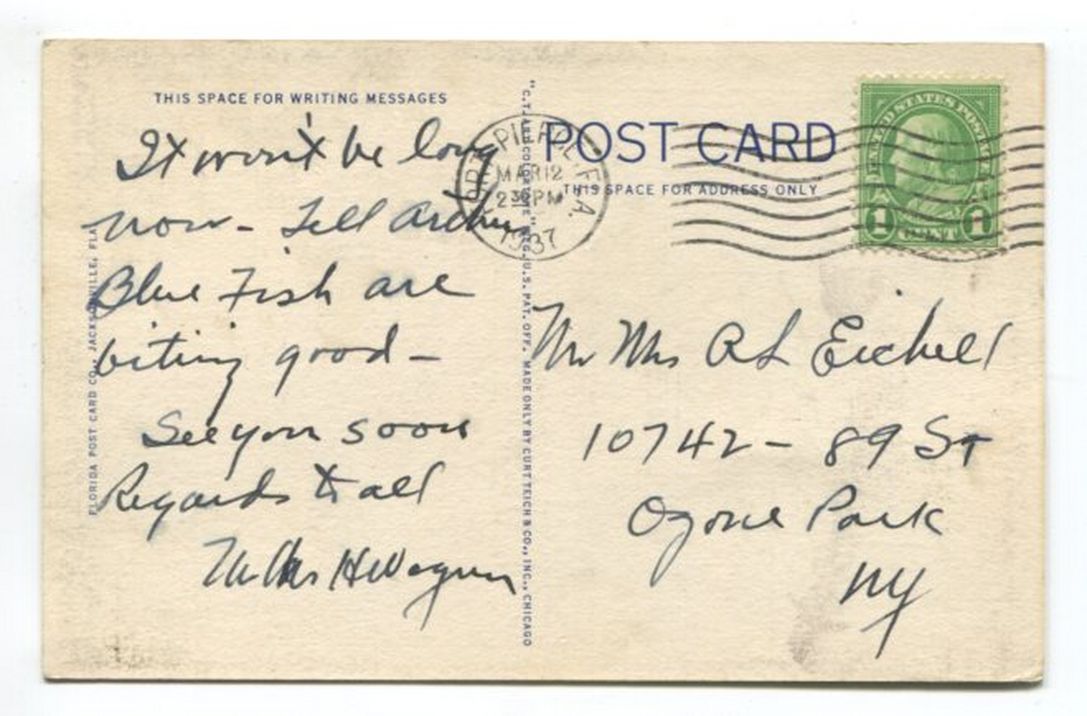 THIS SPACE FOR WRITING MESSAGES
It won't be long
now - Tell Archie
Blue Fish are
biting good -
See you soon
Regards to all
Mr Mrs H Wagner
FLORIDA POST CARD CO., JACKSONVILLE, FLA.
"C.T. ART-COLORTONE" REG. U.S. PAT. OFF. MADE ONLY BY CURT TEICH & CO., INC., CHICAGO
FORT PIERCE, FLA.
MAR 12
2 30 PM
1937
POST CARD
THIS SPACE FOR ADDRESS ONLY
UNITED STATES POSTAGE
1 CENT 1
Mr Mrs A L Eichell
10742 - 89 St
Ozone Park
NY